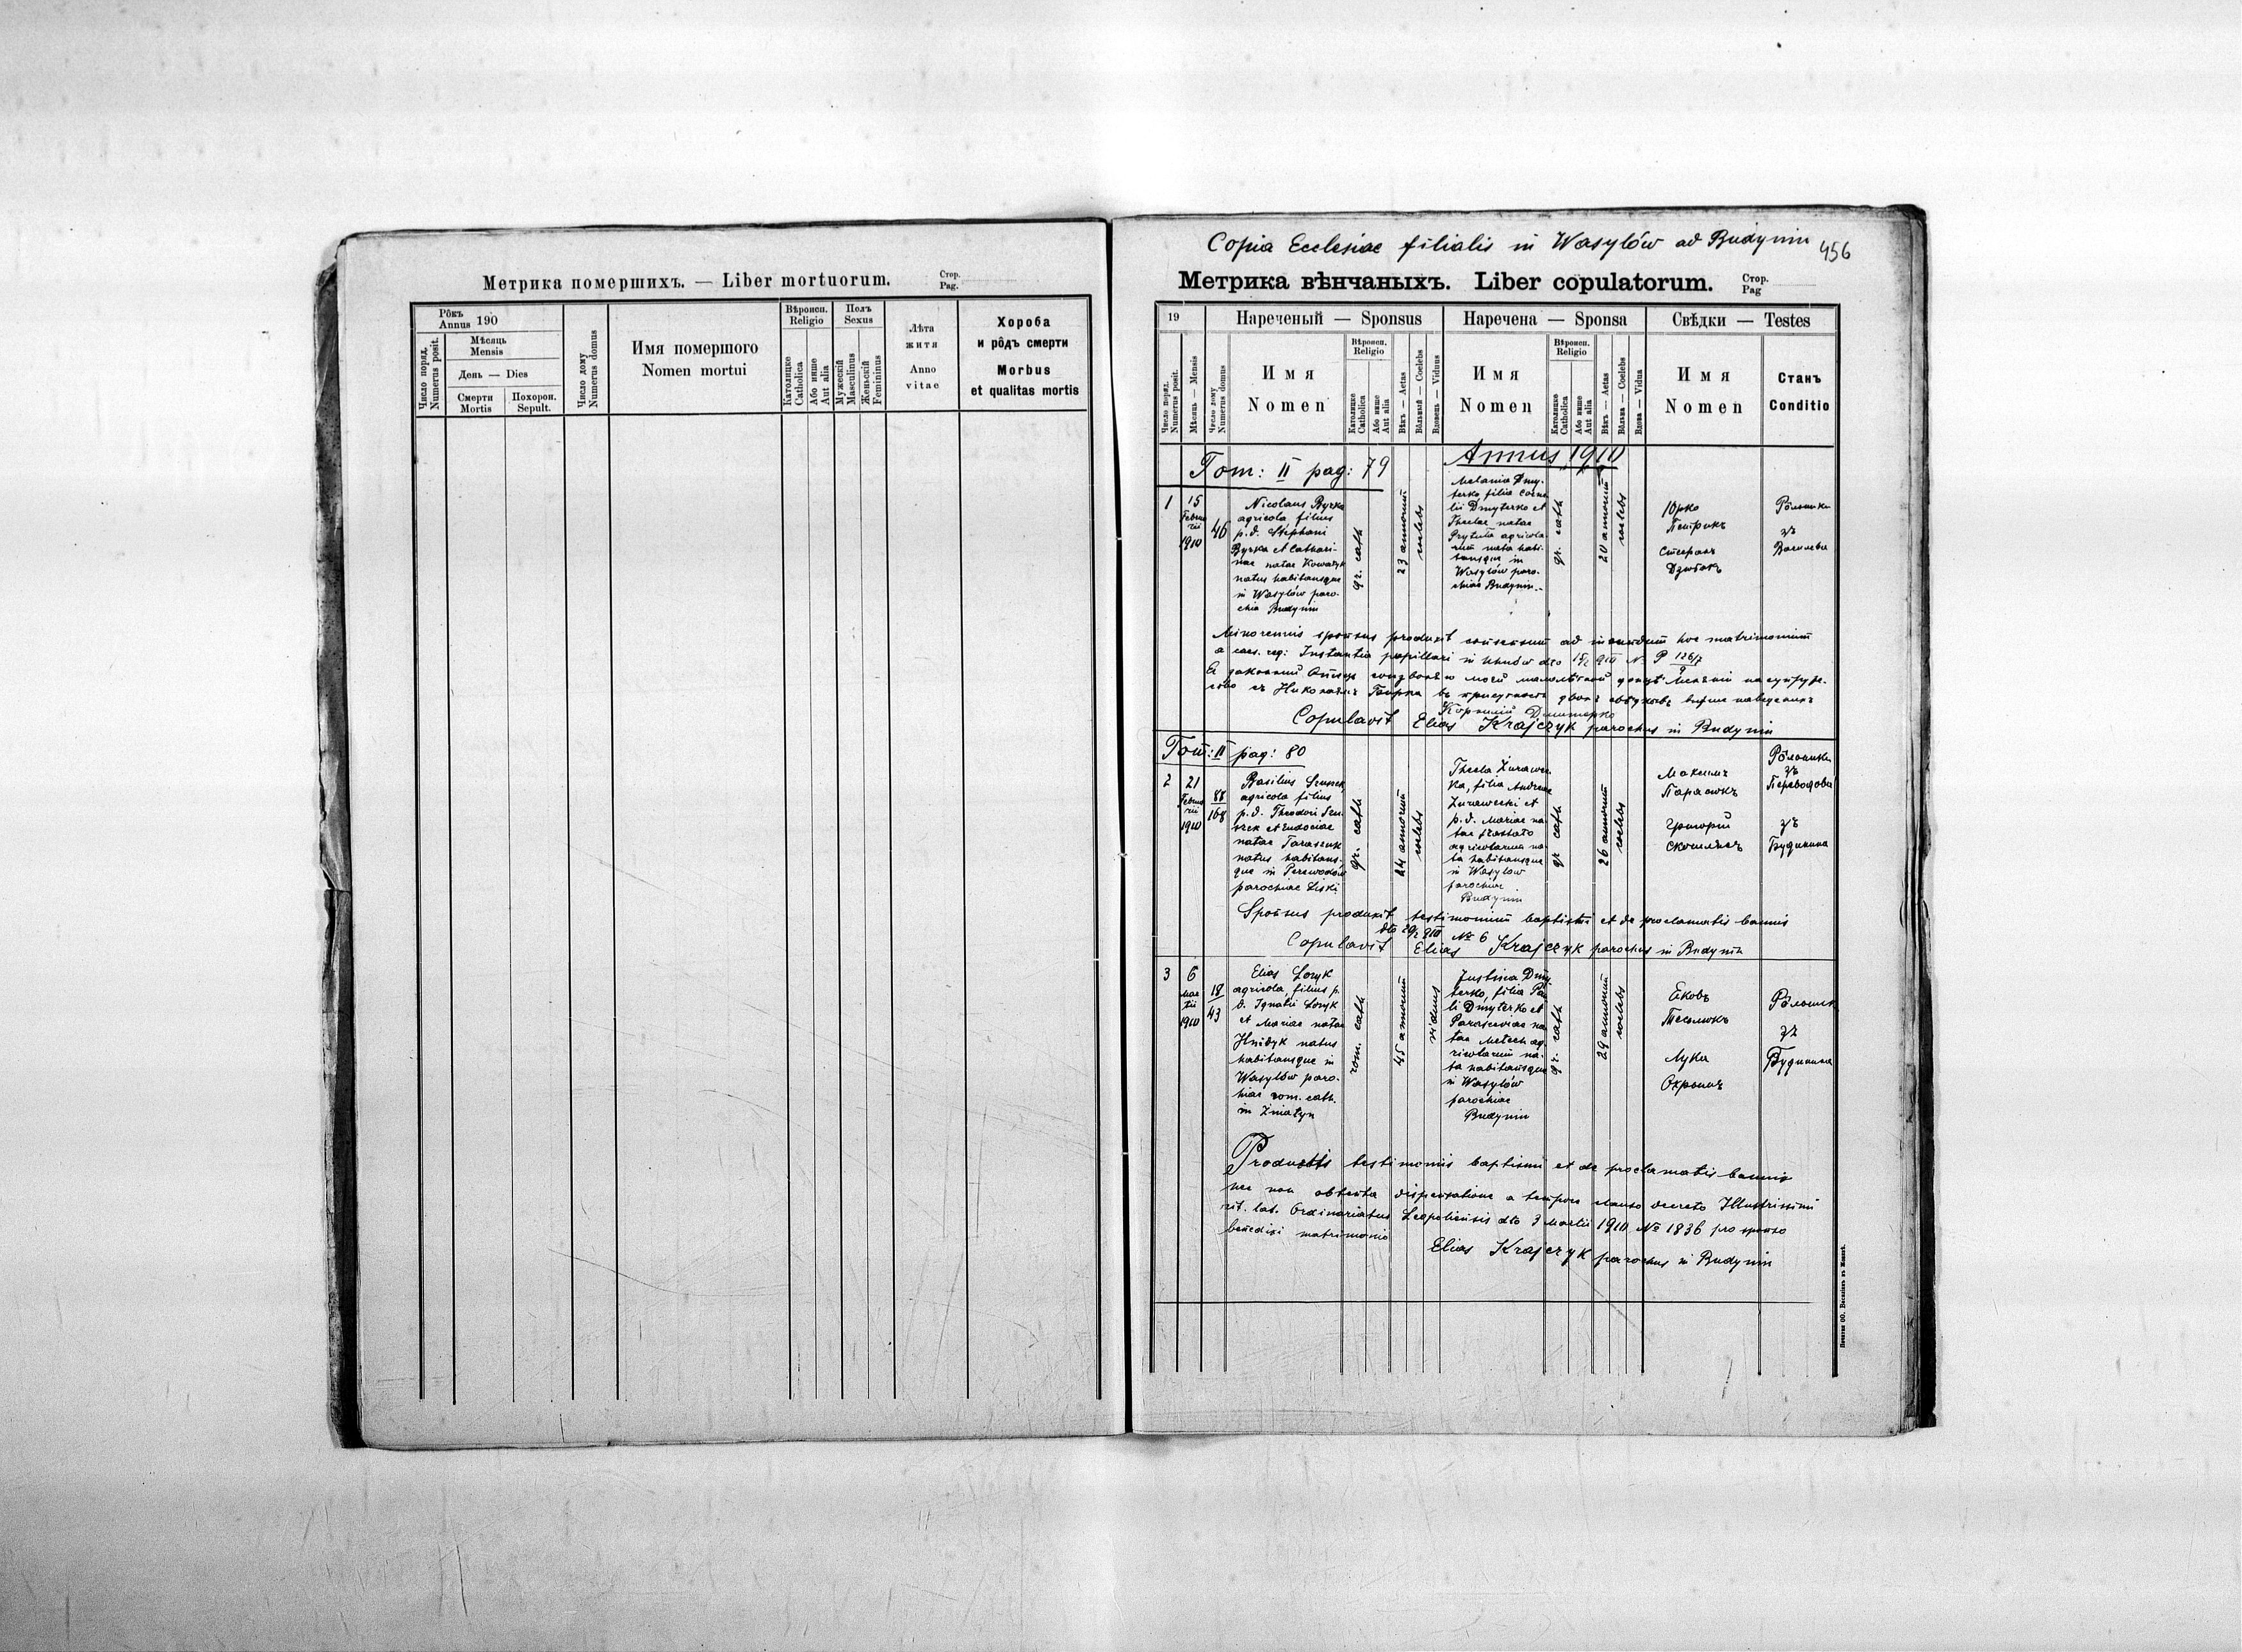 Метрика помершихъ. — Liber mortuorum.
Стор.
Pag.
Рôкъ
Annus 190
Число поряд.
Numerus posit.
Мѣсяць
Mensis
День — Dies
Смерти
Mortis
Похорон.
Sepult.
Число дому
Numerus domus
Имя помершого
Nomen mortui
Вѣроисп.
Religio
Католицке
Catholica
Або инше
Aut alia
Полъ
Sexus
Мужескій
Masculinus
Женьскій
Femininus
Лѣта
житя
Anno
vitae
Хороба
и рôдъ смерти
Morbus
et qualitas mortis
Copia Ecclesiae filialis in Wasylów ad Budynin
456
Метрика вѣнчаныхъ. Liber copulatorum.
Стор.
Pag
19
Нареченый — Sponsus
Наречена — Sponsa
Свѣдки — Testes
Число поряд.
Numerus posit.
Мѣсяць — Mensis
Число дому
Numerus domus
Имя
Nomen
Вѣроисп.
Religio
Католицке
Catholica
Або инше
Aut alia
Вѣкъ — Aetas
Вôльный — Coelebs
Вдовець — Viduus
Имя
Nomen
Вѣроисп.
Religio
Католицке
Catholica
Або инше
Aut alia
Вѣкъ — Aetas
Вôльна — Coelebs
Вдова — Vidua
Имя
Nomen
Станъ
Conditio
Annus 1910
Tom: II pag: 79
1
15
Februarii
1910
46
Nicolaus Byrka
agricola, filius
p. d. Stephani
Byrka et Cathari-
nae natae Kowalyk
natus habitansque
in Wasylów paro-
chia Budynin
gr. cath
23 annorum
coelebs
Melania Dmy-
terko, filia Corne
lii Dmyterko et
Theclae natae
Prytuła agricola-
rum nata habi-
tansque in
Wasylów paro-
chiae Budynin.
gr. cath
20 annorum
coelebs
Юрко
Петрикъ
Стефанъ
Дзюбакъ
Рôльники
зъ
Василева
Minorennis sponsus produxit consensum ad ineundum hoc matrimonium
a caes. reg: Instantia pupillari in Uhnów dto
Корнилій Дмитерко
Copulavit Elias Krajczyk parochus in Budynin
Tom: II pag: 80
2
21
Februarii
1910
88
168
Basilius Szuszek
agricola filius
p. d. Theodori Szu
szek et Eudociae
natae Tarasiuk
natus habitans-
que in Perewodów
parochiae Liski
gr. cath
24 annorum
coelebs
Thecla Żurawec
ka, filia Andreae
Żurawecki et
p. d. Mariae na
tae
agricolarum na-
ta habitansque
in Wasylow
parochiae
Budynin
gr cath
26 annorum
coelebs
Максимъ
Парасюкъ
Григорій
Рôльники
зъ
Переводова
зъ
Будинина
Sponsus produxit testimonium baptismi et de proclamatis bannis
№ 6
Copulavit Elias Krajczyk parochus in Budynin
3
6
Martii
1910
18
43
Elias Łozyk
agricola, filius p.
d. Ignatii Łozyk
et Mariae natae
Hnidyk natus
habitansque in
Wasylów paro-
hiae rom. cath.
in Żniatyn
rom. cath
45 annorum
viduus
Justina Dmy
terko, filia Pau
li Dmyterko et
Parasceviae na
tae Melech ag-
ricolarum na-
ta habitansque
in Wasylów
parochiae
Budynin
gr. cath
29 annorum
coelebs
Яковъ
Теслюкъ
Лука
Охримъ
Рôльники
зъ
Будинина
Productis testimoniis baptismi et de proclamatis bannis
nec non obtenta dispensatione a tempore clauso decreto Illustrissimi
rit. lat. Ordinariatus Leopoliensis dto 3 Martii 1910 № 1836 pro sponso
benedixi matrimonio
Elias Krajczyk parochus in Budynin